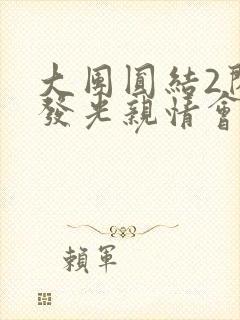 大團圓結2
發光親情會
賴軍